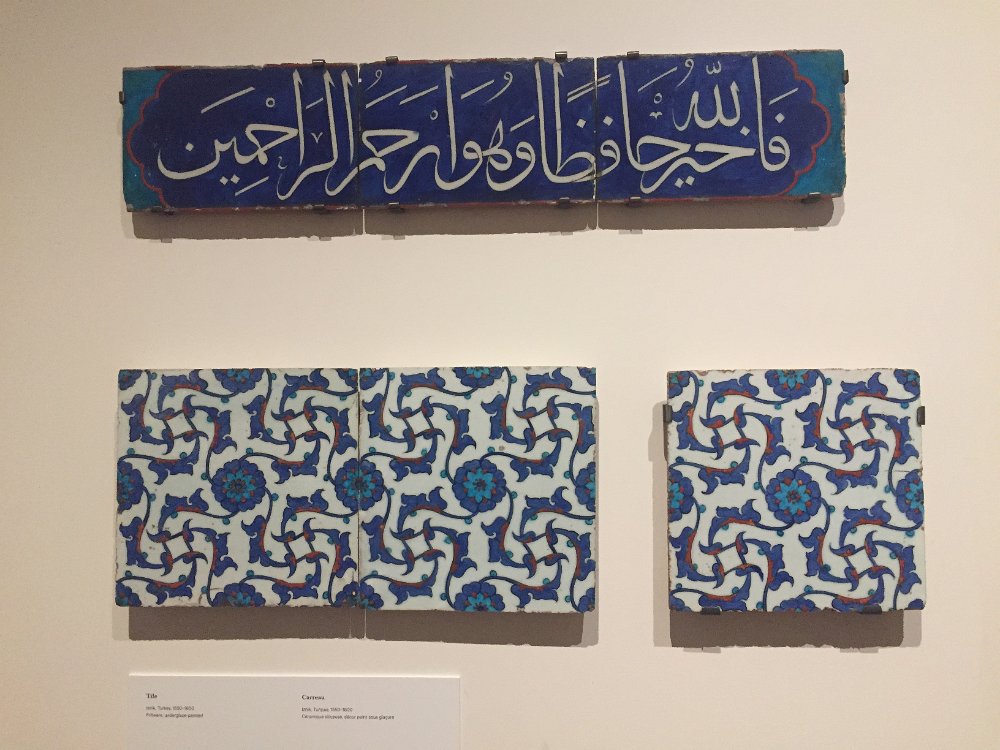 فَاللّٰهُ خَيْرٌ حَافِظًا وَهُوَ اَرْحَمُ الرَّاحِمِينَ
Tile
Iznik, Turkey, 1550–1600
Fritware, underglaze-painted
Carreau
Iznik, Turquie, 1550–1600
Céramique siliceuse, décor peint sous glaçure